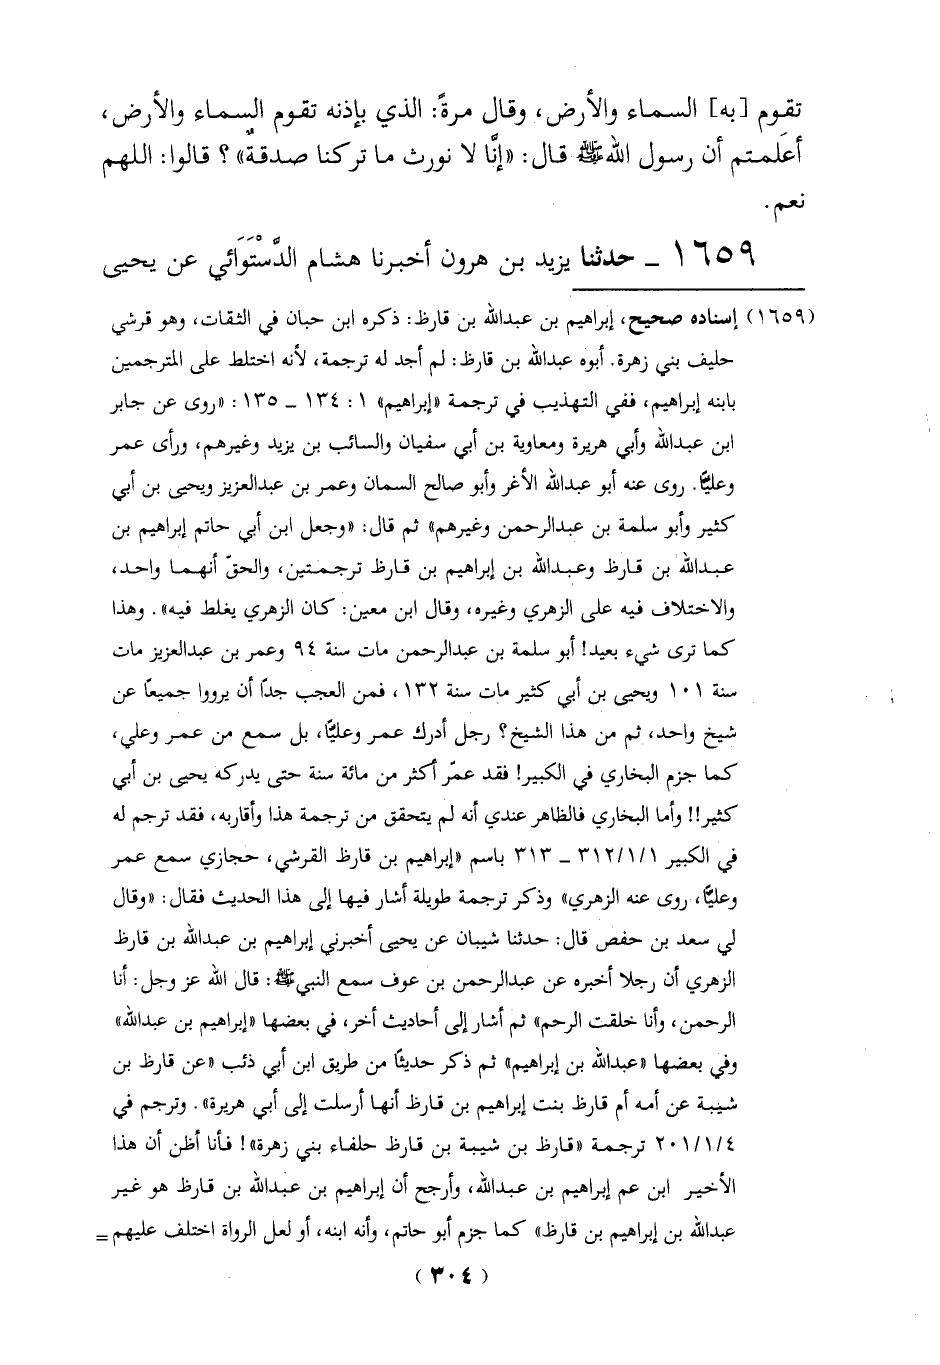 تقوم [به] السماء والأرض، وقال مرةً: الذي بإذنه تقوم السماء والأرض،
أعَلمتم أن رسول الله ﷺ قال: «إنَّا لا نورث ما تركنا صدقةٌ» ؟ قالوا: اللهم
نعم.
١٦٥٩ ـ حدثنا يزيد بن هرون أخبرنا هشام الدَّسْتَوَائي عن يحيى
(١٦٥٩) إسناده صحيح، إبراهيم بن عبدالله بن قارظ: ذكره ابن حبان في الثقات، وهو قرشي
حليف بني زهرة. أبوه عبدالله بن قارظ: لم أجد له ترجمة، لأنه اختلط على المترجمين
بابنه إبراهيم، ففي التهذيب في ترجمة «إبراهيم» ١: ١٣٤ ـ ١٣٥: «روى عن جابر
ابن عبدالله وأبي هريرة ومعاوية بن أبي سفيان والسائب بن يزيد وغيرهم، ورأى عمر
وعليًّا. روى عنه أبو عبدالله الأغر وأبو صالح السمان وعمر بن عبدالعزيز ويحيى بن أبي
كثير وأبو سلمة بن عبدالرحمن وغيرهم» ثم قال: «وجعل ابن أبي حاتم إبراهيم بن
عبدالله بن قارظ وعبدالله بن إبراهيم بن قارظ ترجمتين، والحقّ أنهما واحد،
والاختلاف فيه على الزهري وغيره، وقال ابن معين: كان الزهري يغلط فيه». وهذا
كما ترى شيء بعيد! أبو سلمة بن عبدالرحمن مات سنة ٩٤ وعمر بن عبدالعزيز مات
سنة ١٠١ ويحيى بن أبي كثير مات سنة ١٣٢، فمن العجب جداً أن يرووا جميعاً عن
شيخ واحد، ثم من هذا الشيخ؟ رجل أدرك عمر وعليًّا، بل سمع من عمر وعلي،
كما جزم البخاري في الكبير! فقد عمّر أكثر من مائة سنة حتى يدركه يحيى بن أبي
كثير!! وأما البخاري فالظاهر عندي أنه لم يتحقق من ترجمة هذا وأقاربه، فقد ترجم له
في الكبير ٣١٢/١/١ ـ ٣١٣ باسم «إبراهيم بن قارظ القرشي، حجازي سمع عمر
وعليًّا، روى عنه الزهري» وذكر ترجمة طويلة أشار فيها إلى هذا الحديث فقال: «وقال
لي سعد بن حفص قال: حدثنا شيبان عن يحيى أخبرني إبراهيم بن عبدالله بن قارظ
الزهري أن رجلا أخبره عن عبدالرحمن بن عوف سمع النبي ﷺ: قال الله عز وجل: أنا
الرحمن، وأنا خلقت الرحم» ثم أشار إلى أحاديث أخر، في بعضها «إبراهيم بن عبدالله»
وفي بعضها «عبدالله بن إبراهيم» ثم ذكر حديثًا من طريق ابن أبي ذئب «عن قارظ بن
شيبة عن أمه أم قارظ بنت إبراهيم بن قارظ أنها أرسلت إلى أبي هريرة». وترجم في
٢٠١/١/٤ ترجمة «قارظ بن شيبة بن قارظ حلفاء بني زهرة»! فأنا أظن أن هذا
الأخير ابن عم إبراهيم بن عبدالله، وأرجح أن إبراهيم بن عبدالله بن قارظ هو غير
عبدالله بن إبراهيم بن قارظ» كما جزم أبو حاتم، وأنه ابنه، أو لعل الرواة اختلف عليهم =
(٣٠٤)